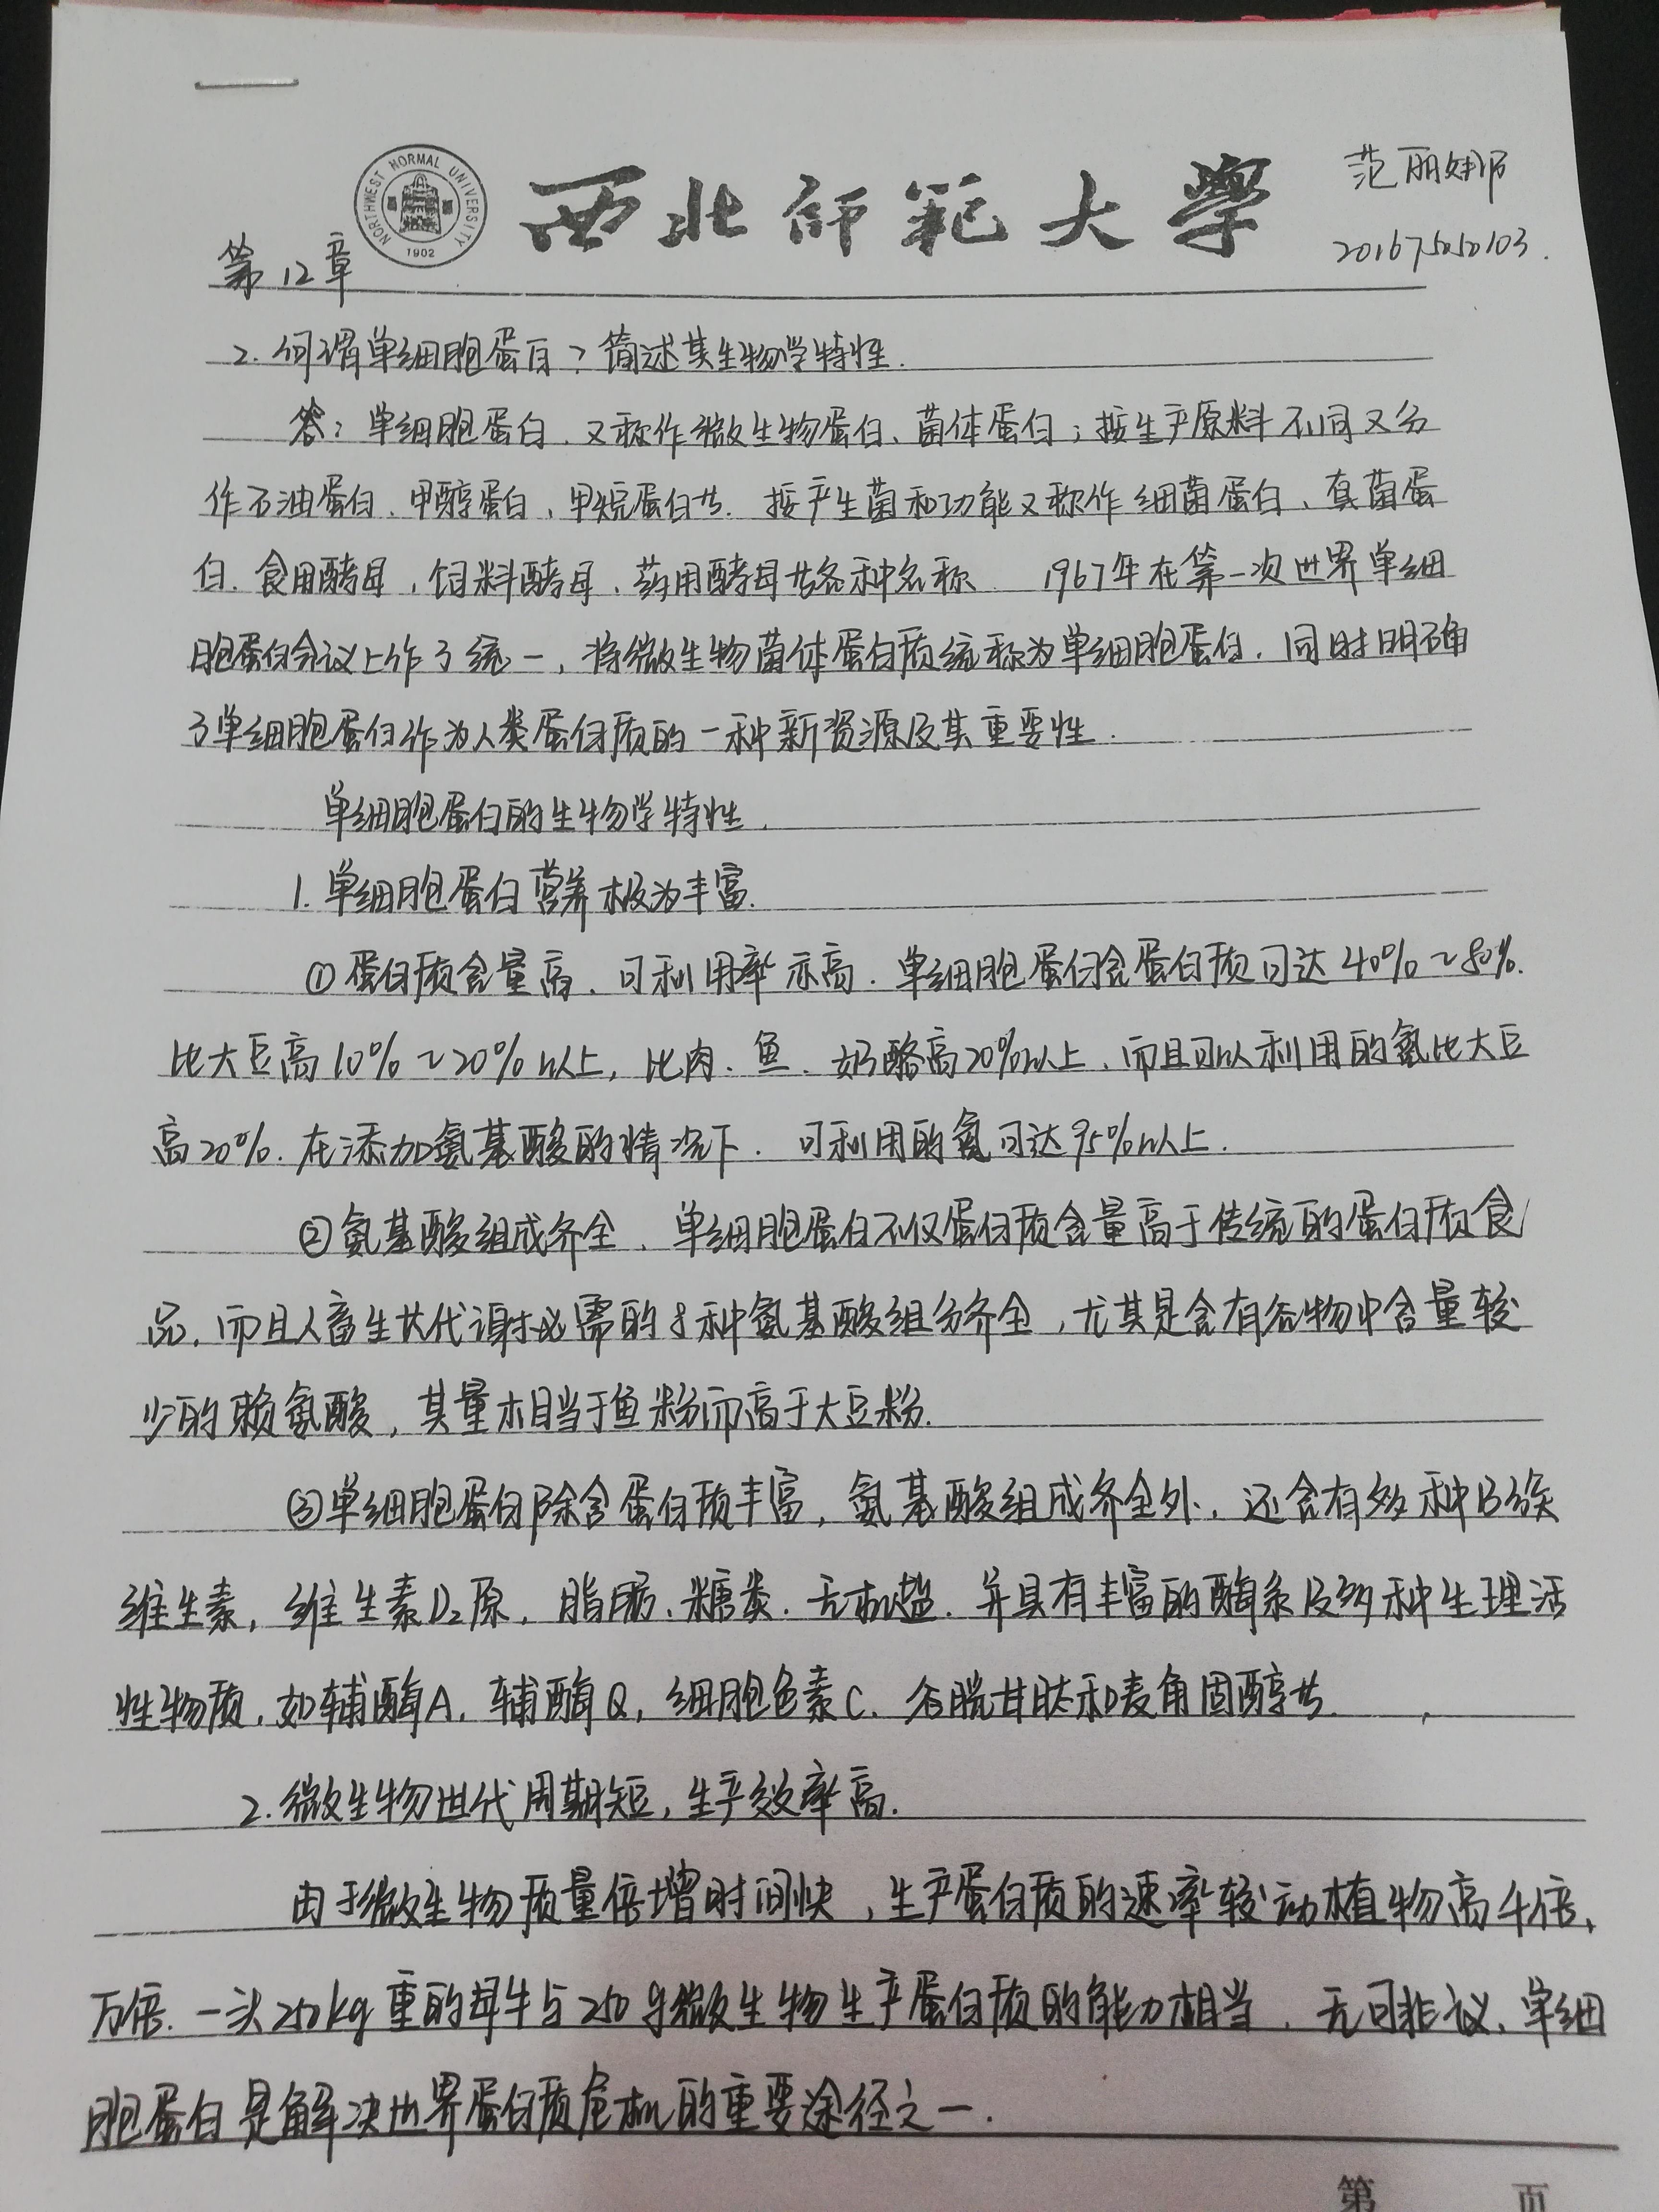 NORTHWEST NORMAL UNIVERSITY
1902
西北师范大学
范丽娜
201675050103.
第12章
2. 何谓单细胞蛋白？简述其生物学特性.
答：单细胞蛋白、又称作微生物蛋白、菌体蛋白；按生产原料不同又分
作石油蛋白、甲醇蛋白、甲烷蛋白等. 按产生菌和功能又称作细菌蛋白、真菌蛋
白、食用酵母，饲料酵母、药用酵母等各种名称. 1967年在第一次世界单细
胞蛋白会议上作了统一，将微生物菌体蛋白质统称为单细胞蛋白. 同时明确
了单细胞蛋白作为人类蛋白质的一种新资源及其重要性.
单细胞蛋白的生物学特性.
1. 单细胞蛋白营养极为丰富.
①蛋白质含量高、可利用率亦高. 单细胞蛋白含蛋白质可达40%~80%.
比大豆高10%~20%以上, 比肉、鱼、奶酪高20%以上、而且可以利用的氮比大豆
高20%. 在添加氨基酸的情况下. 可利用的氮可达95%以上.
②氨基酸组成齐全、单细胞蛋白不仅蛋白质含量高于传统的蛋白质食
品，而且人畜生长代谢必需的8种氨基酸组分齐全，尤其是含有谷物中含量较
少的赖氨酸，其量相当于鱼粉而高于大豆粉.
③单细胞蛋白除含蛋白质丰富，氨基酸组成齐全外、还含有多种B族
维生素，维生素D2原，脂肪、糖类、无机盐. 并具有丰富的酶系及多种生理活
性物质，如辅酶A、辅酶Q，细胞色素C、谷胱甘肽和麦角固醇等.
2. 微生物世代周期短，生产效率高.
由于微生物质量倍增时间快，生产蛋白质的速率较动植物高千倍、
万倍. 一头250kg重的母牛与250g微生物生产蛋白质的能力相当. 无可非议、单细
胞蛋白是解决世界蛋白质危机的重要途径之一.
第 页